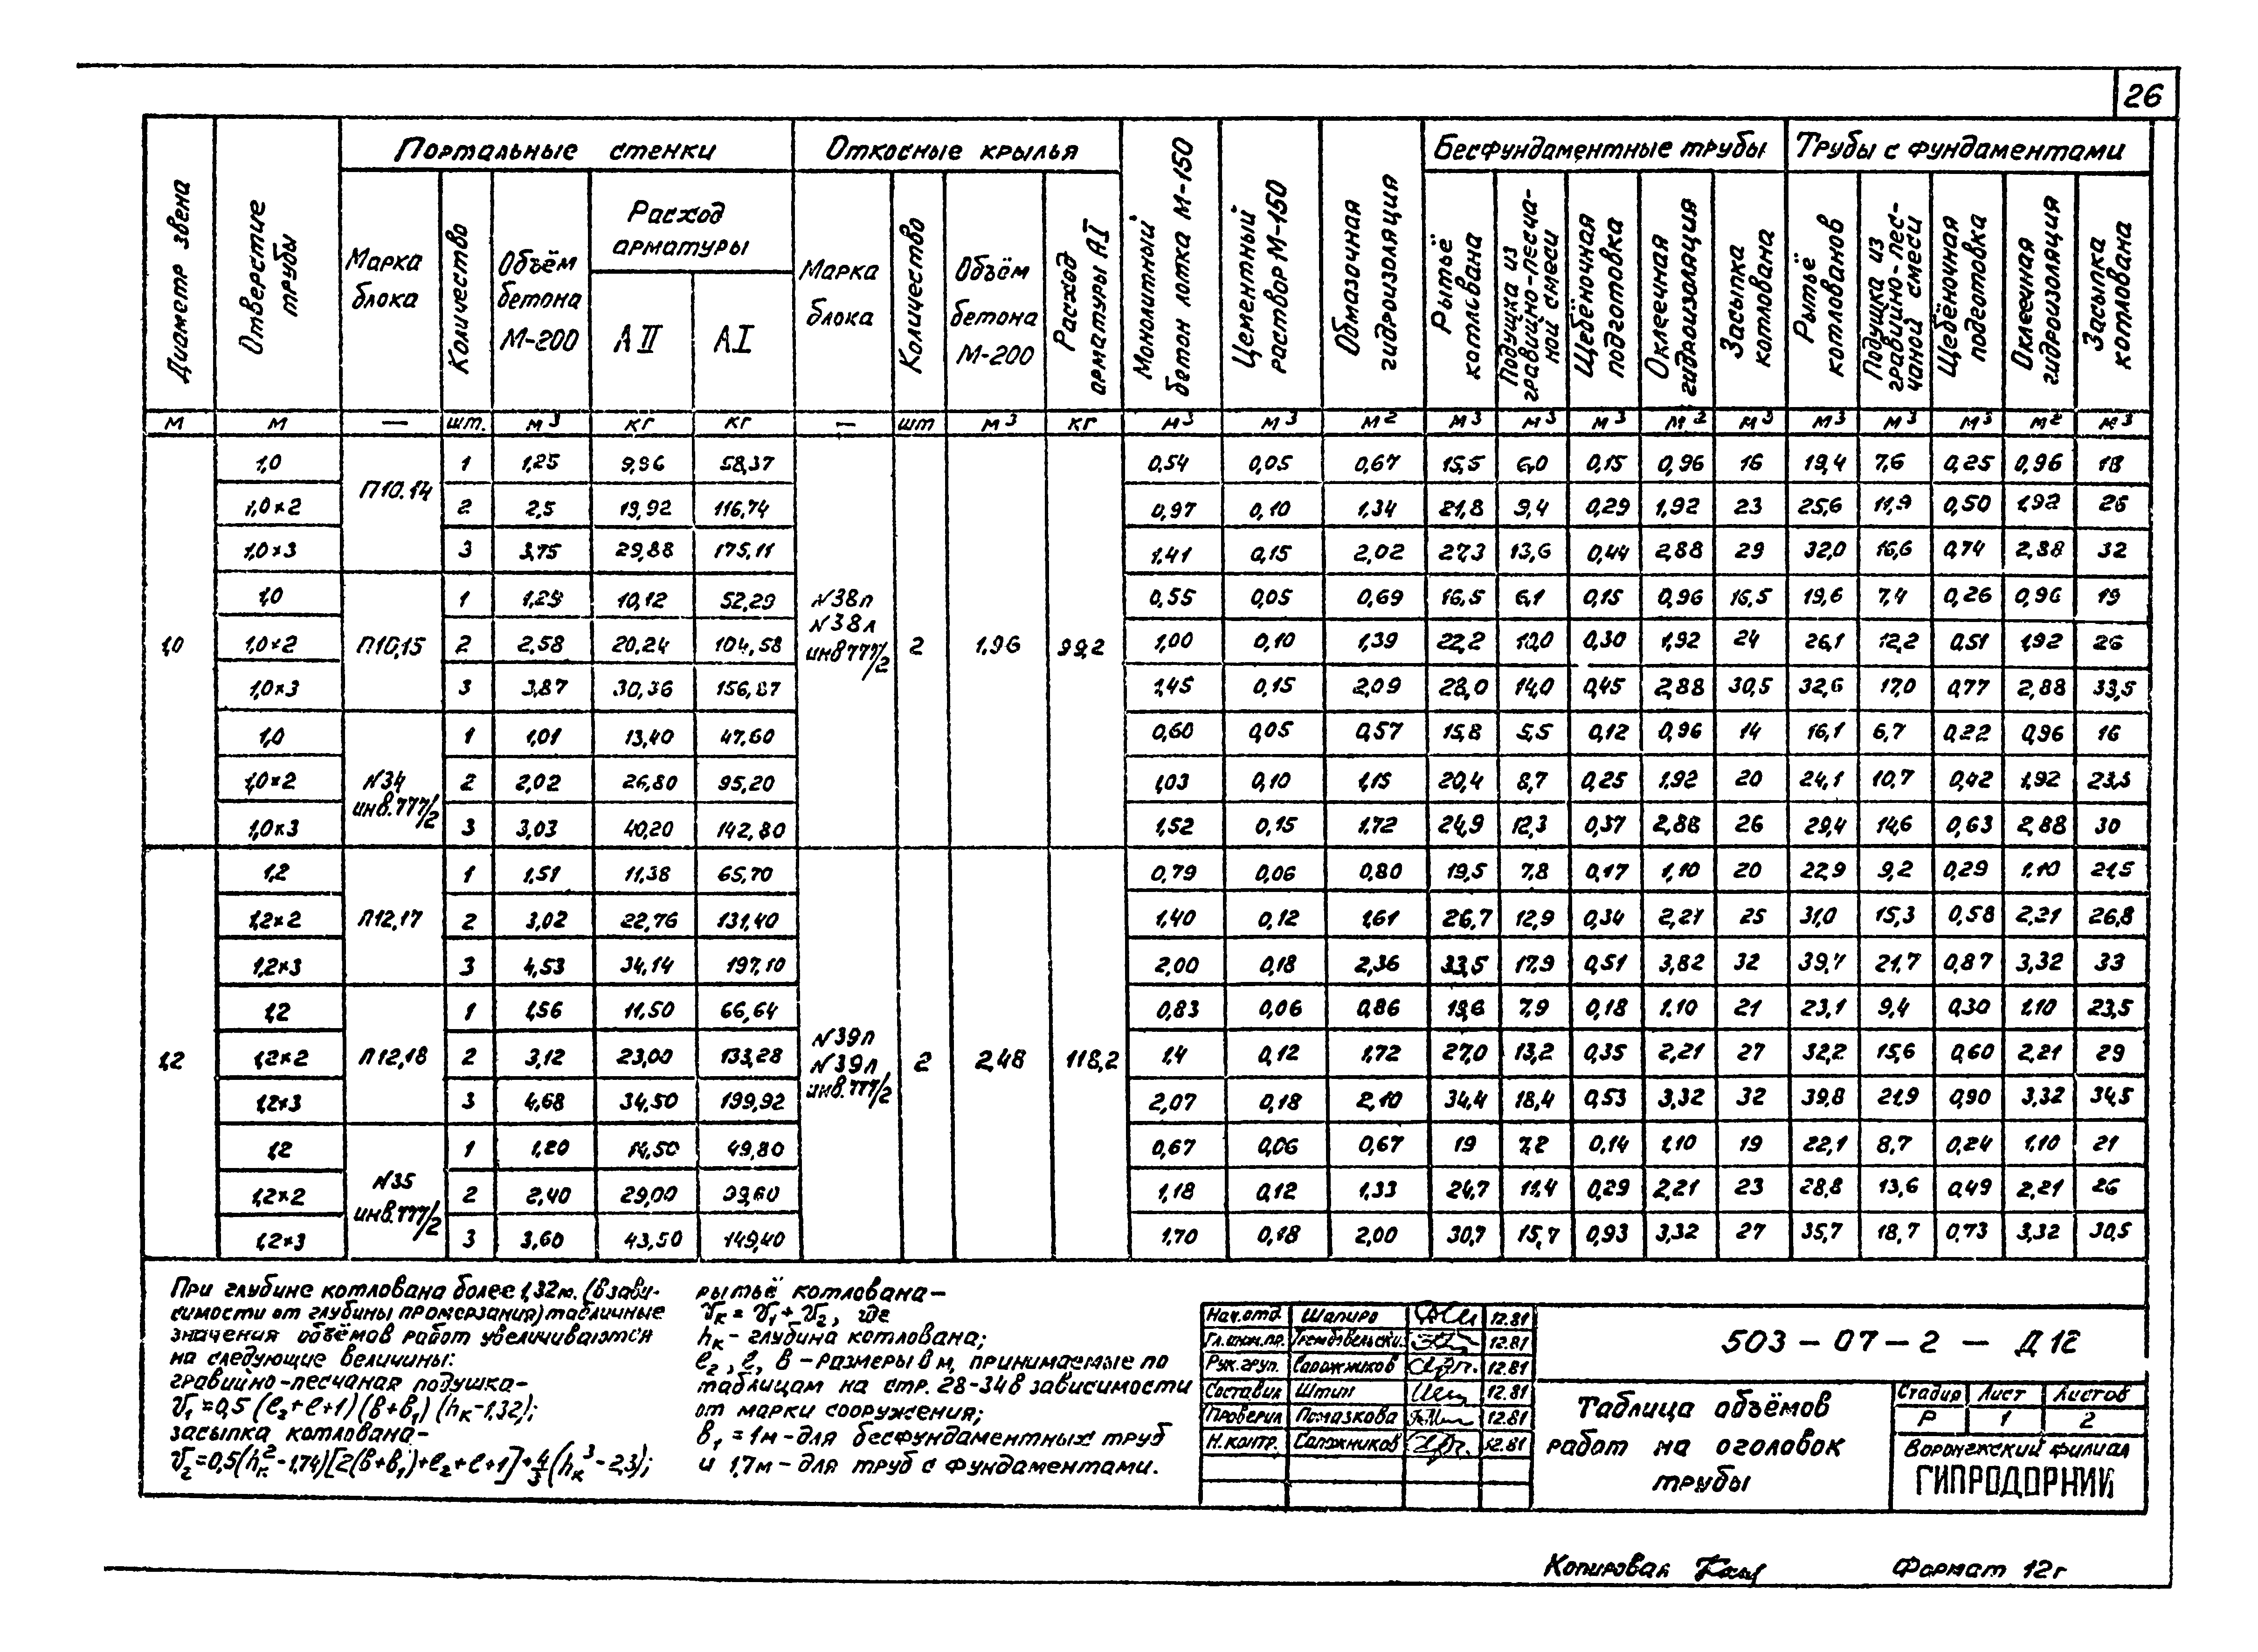 26
Диаметр звена
Отверстие трубы
Портальные стенки
Откосные крылья
Монолитный бетон лотка М-150
Цементный раствор М-150
Обмазочная гидроизоляция
Бесфундаментные трубы
Трубы с фундаментами
Марка блока
Количество
Объём бетона М-200
Расход арматуры
АII
АI
Марка блока
Количество
Объём бетона М-200
Расход арматуры АI
Рытьё котлована
Подушка из гравийно-песчаной смеси
Щебёночная подготовка
Оклеечная гидроизоляция
Засыпка котлована
Рытьё котлованов
Подушка из гравийно-песчаной смеси
Щебёночная подготовка
Оклеечная гидроизоляция
Засыпка котлована
м м — шт. м³ кг кг — шт м³ кг м³ м³ м² м³ м³ м³ м² м³ м³ м³ м³ м² м³
1,0 П10.14 1 1,25 9,96 58,37 0,54 0,05 0,67 15,5 6,0 0,15 0,96 16 19,4 7,6 0,25 0,96 18
1,0×2 2 2,5 19,92 116,74 0,97 0,10 1,34 21,8 9,4 0,29 1,92 23 25,6 11,9 0,50 1,92 25
1,0×3 3 3,75 29,88 175,11 1,41 0,15 2,02 27,3 13,6 0,44 2,88 29 32,0 16,6 0,74 2,88 32
1,0 1 1,29 10,12 52,29 0,55 0,05 0,69 16,5 6,1 0,15 0,96 16,5 19,6 7,4 0,26 0,96 19
1,0 1,0×2 П10,15 2 2,58 20,24 104,58 №38п №38л инв 777/2 2 1,96 99,2 1,00 0,10 1,39 22,2 10,0 0,30 1,92 24 26,1 12,2 0,51 1,92 26
1,0×3 3 3,87 30,36 156,87 1,45 0,15 2,09 28,0 14,0 0,45 2,88 30,5 32,6 17,0 0,77 2,88 33,5
1,0 1 1,01 13,40 47,60 0,60 0,05 0,57 15,8 5,5 0,12 0,96 14 16,1 6,7 0,22 0,96 16
1,0×2 №34 инв.777/2 2 2,02 26,80 95,20 1,03 0,10 1,15 20,4 8,7 0,25 1,92 20 24,1 10,7 0,42 1,92 23,5
1,0×3 3 3,03 40,20 142,80 1,52 0,15 1,72 24,9 12,3 0,37 2,88 26 29,4 14,6 0,63 2,88 30
1,2 1 1,51 11,38 65,70 0,79 0,06 0,80 19,5 7,8 0,17 1,10 20 22,9 9,2 0,29 1,10 21,5
1,2×2 П12,17 2 3,02 22,76 131,40 1,40 0,12 1,61 26,7 12,9 0,34 2,21 25 31,0 15,3 0,58 2,21 26,8
1,2×3 3 4,53 34,14 197,10 2,00 0,18 2,36 33,5 17,9 0,51 3,82 32 39,7 21,7 0,87 3,32 33
1,2 1 1,56 11,50 66,64 0,83 0,06 0,86 19,6 7,9 0,18 1,10 21 23,1 9,4 0,30 1,10 23,5
1,2 1,2×2 П12,18 2 3,12 23,00 133,28 №39п №39л инв.777/2 2 2,48 118,2 1,4 0,12 1,72 27,0 13,2 0,35 2,21 27 32,2 15,6 0,60 2,21 29
1,2×3 3 4,68 34,50 199,92 2,07 0,18 2,10 34,4 18,4 0,53 3,32 32 39,8 21,9 0,90 3,32 34,5
1,2 1 1,20 14,50 49,80 0,67 0,06 0,67 19 7,2 0,14 1,10 19 22,1 8,7 0,24 1,10 21
1,2×2 №35 инв.777/2 2 2,40 29,00 99,60 1,18 0,12 1,33 24,7 11,4 0,29 2,21 23 28,8 13,6 0,49 2,21 26
1,2×3 3 3,60 43,50 149,40 1,70 0,18 2,00 30,7 15,7 0,93 3,32 27 35,7 18,7 0,73 3,32 30,5
При глубине котлована более 1,32м. (в зави-
симости от глубины промерзания) табличные
значения объёмов работ увеличиваются
на следующие величины:
гравийно-песчаная подушка-
V₁=0,5(ℓ₂+ℓ+1)(в+в₁)(hк-1,32);
засыпка котлована-
V₂=0,5(hк²-1,74)[2(в+в₁)+ℓ₂+ℓ+1]+4/3(hк³-2,3);
рытьё котлована-
Vк=V₁+V₂, где
hк- глубина котлована;
ℓ₂, ℓ, в - размеры в м, принимаемые по
таблицам на стр. 28-34 в зависимости
от марки сооружения;
в₁ = 1м - для бесфундаментных труб
и 1,7м - для труб с фундаментами.
Нач.отд. Шапиро 12.81
Гл.инж.пр. 12.81
Рук.груп. Сапожников 12.81
Составил Штин 12.81
Проверил Помазкова 12.81
Н.контр. Сапожников 12.81
503-07-2-Д12
Таблица объёмов
работ на оголовок
трубы
Стадия Лист Листов
Р 1 2
Воронежский филиал
ГИПРОДОРНИИ
Копировал
Формат 12г